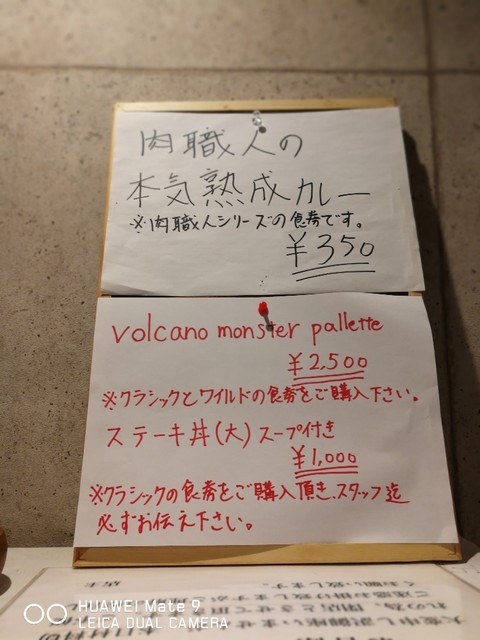 肉職人の
本気熟成カレー
※肉職人シリーズの食券です。
¥350
volcano monster pallette
¥2,500
※クラシックとワイルドの食券をご購入下さい。
ステーキ丼(大)スープ付き
¥1,000
※クラシックの食券をご購入頂き、スタッフ迄
必ずお伝え下さい。
HUAWEI Mate 9
LEICA DUAL CAMERA